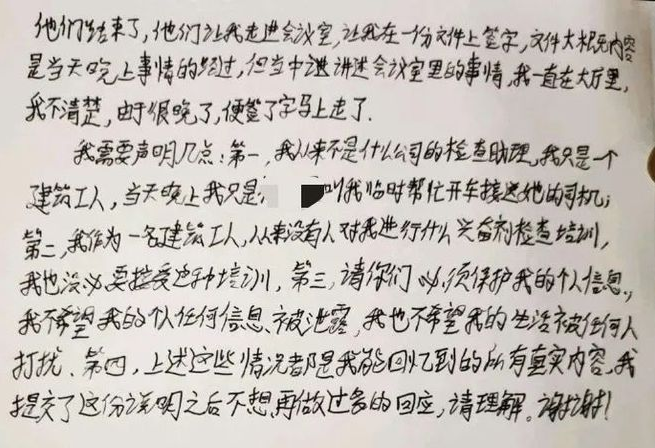 他们结束了,他们让我走进会议室,让我在一份文件上签字,文件大概内容
是当天晚上事情的经过,但当中讲述会议室里的事情,我一直在大厅里,
我不清楚,由于很晚了,便签了字马上走了.
我需要声明几点:第一,我从来不是什么公司的检查助理,我只是一个
建筑工人,当天晚上我只是 叫我临时帮忙开车接送她的司机;
第二,我作为一名建筑工人,从来没有人对我进行什么兴奋剂检查培训,
我也没必要接受这种培训,第三,请你们必须保护我的个人信息,
我不希望我的个人任何信息被泄露,我也不希望我的生活被任何人
打扰.第四,上述这些情况都是我能回忆到的所有真实内容,我
提交了这份说明之后不想再做过多的回应,请理解。谢谢!